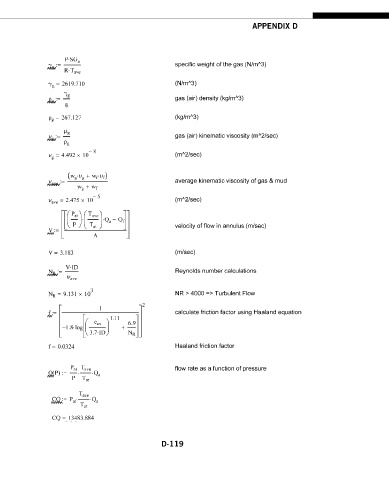 APPENDIX D
γg := P·SGg / R·Tave
specific weight of the gas (N/m^3)
γg = 2619.710
(N/m^3)
ρg := γg / g
gas (air) density (kg/m^3)
ρg = 267.127
(kg/m^3)
νg := μg / ρg
gas (air) kinematic viscosity (m^2/sec)
νg = 4.492 × 10^-8
(m^2/sec)
νave := (wg·νg + wf·νf) / wg + wf
average kinematic viscosity of gas & mud
νave = 2.475 × 10^-5
(m^2/sec)
V := [[(Pat / P)·(Tave / Tat)·Qa + Qf] / A]
velocity of flow in annulus (m/sec)
V = 3.183
(m/sec)
NR := V·ID / νave
Reynolds number calculations
NR = 9.131 × 10^3
NR > 4000 => Turbulent Flow
f := [1 / −1.8·log[(e / 3.7·ID)^1.11 + 6.9 / NR]]^2
calculate friction factor using Haaland equation
f = 0.0324
Haaland friction factor
Q(P) := Pat / P · Tave / Tat · Qa
flow rate as a function of pressure
CQ := Pat · Tave / Tat · Qa
CQ = 13483.884
D-119